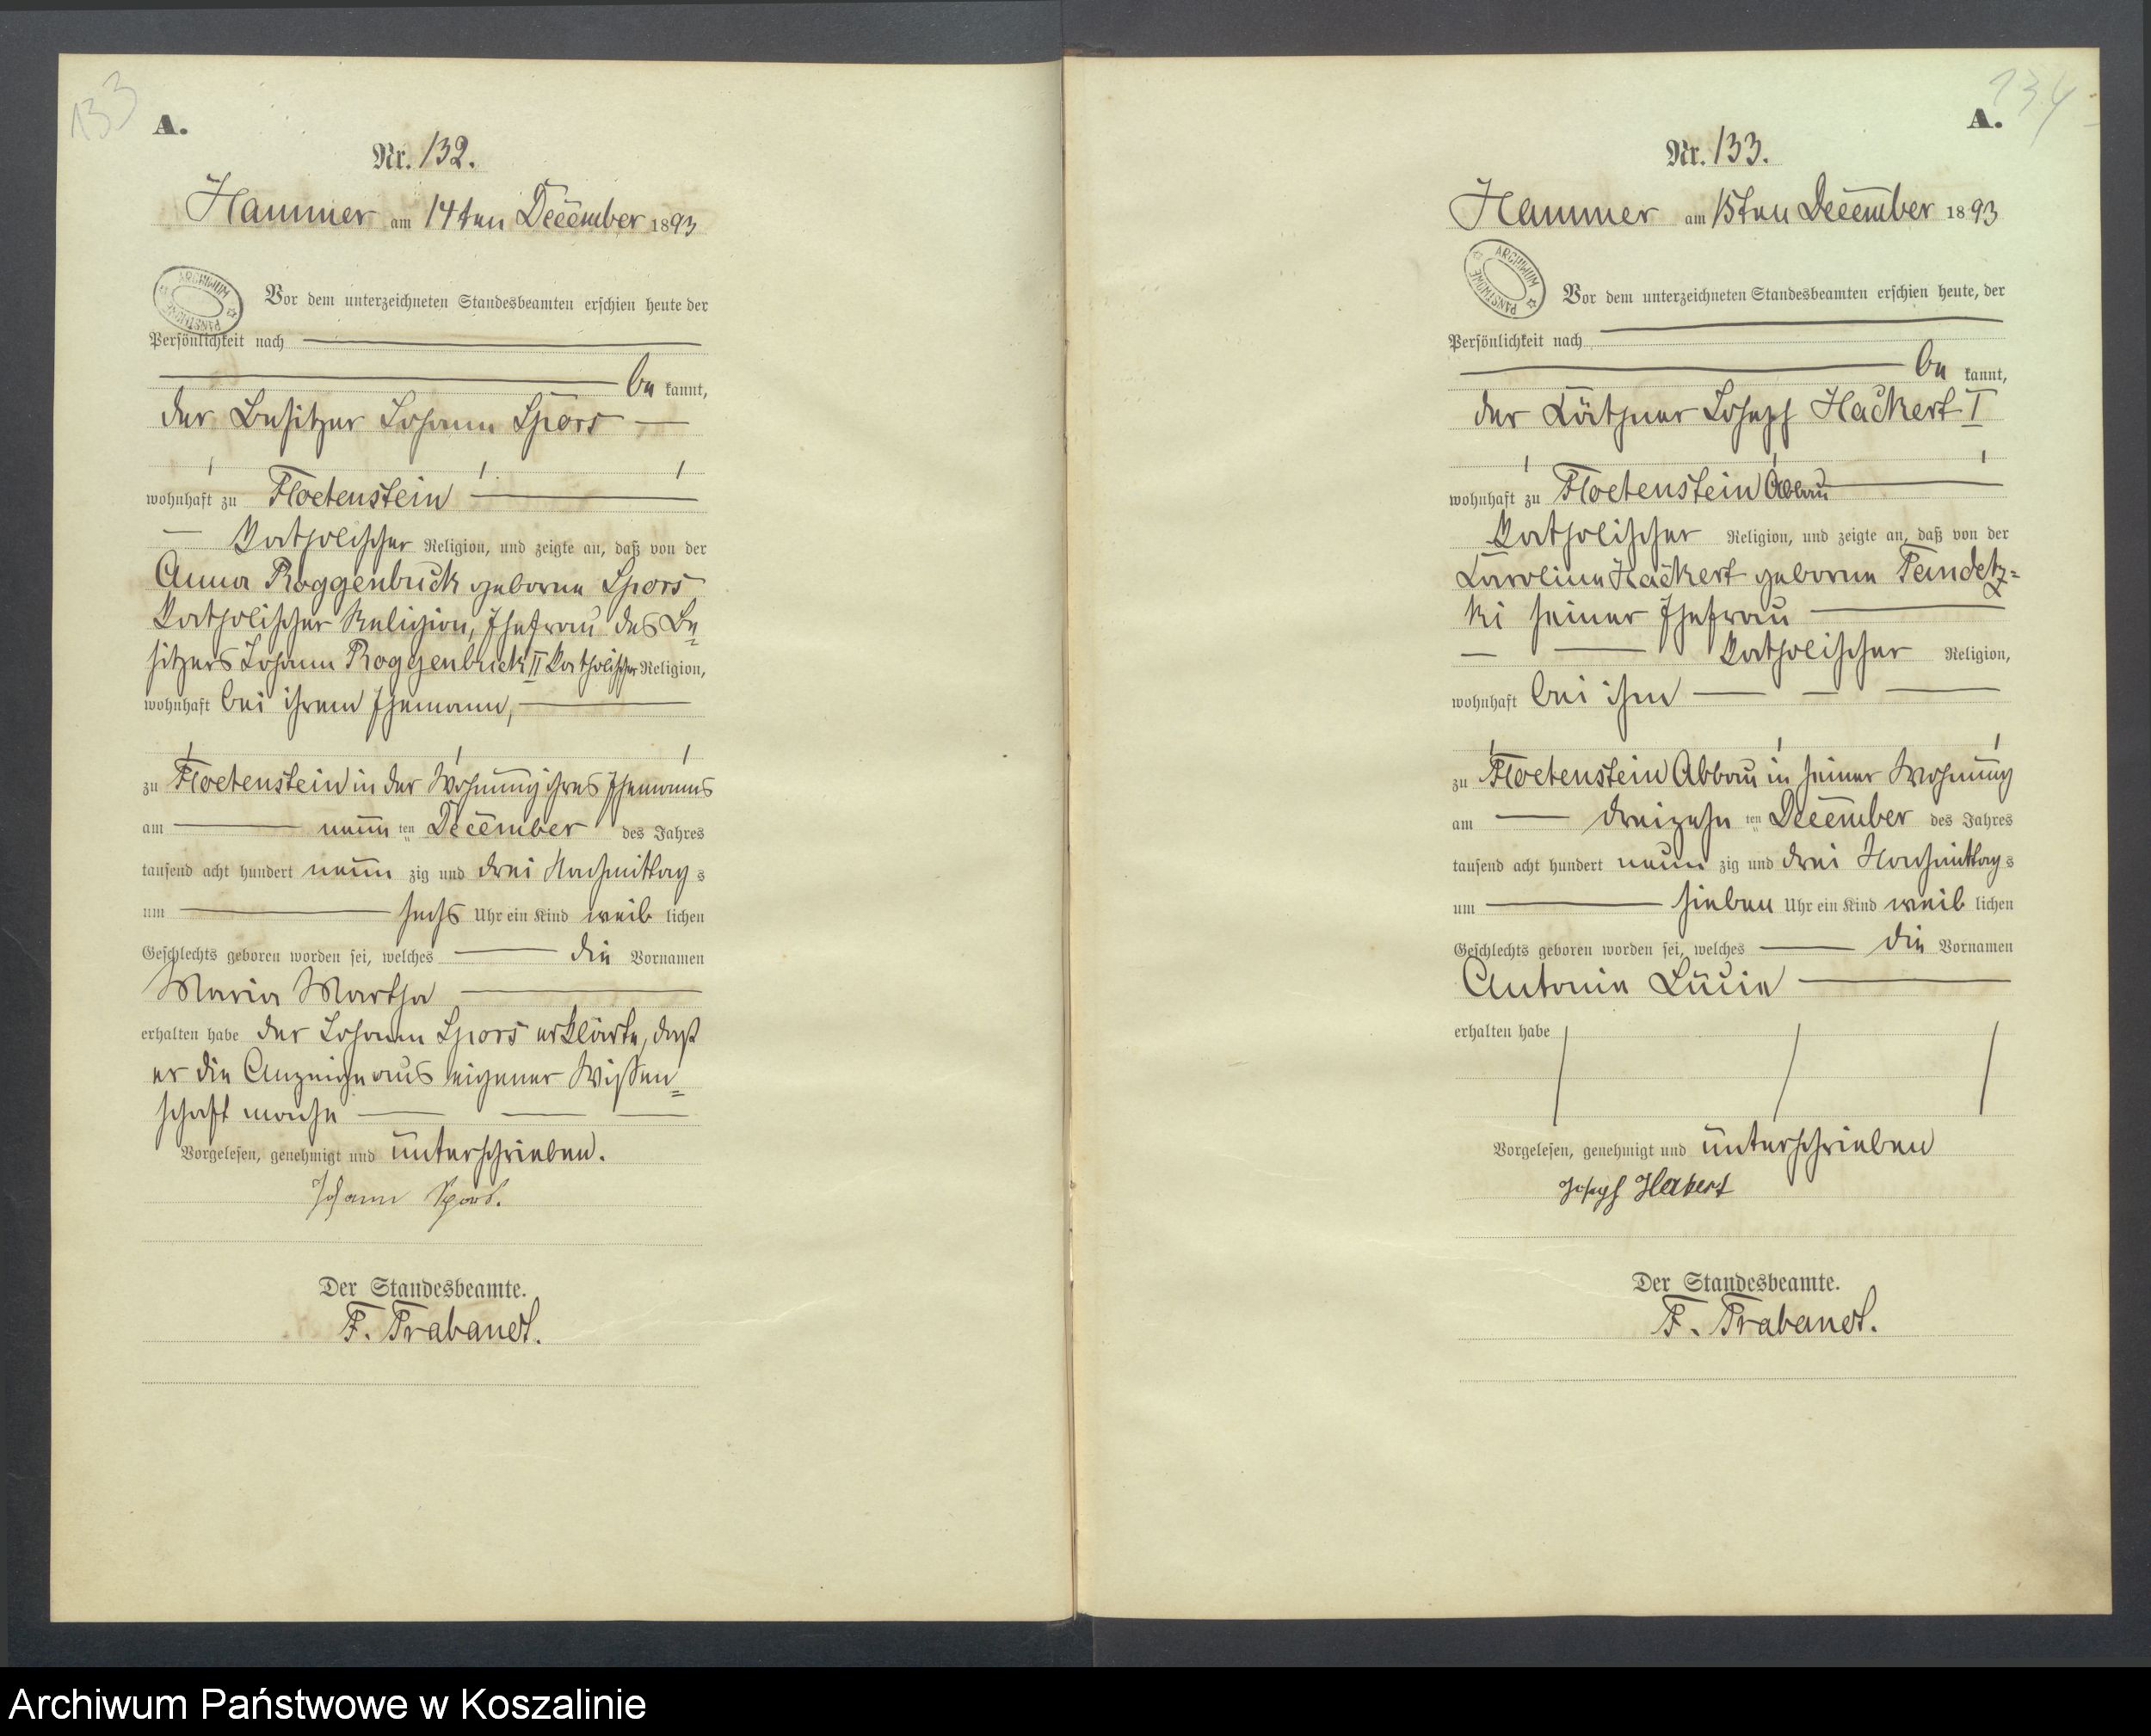 133
A.
Nr. 132.
Hammer am 14ten December 1893
ARCHIWUM PAŃSTWOWE
Vor dem unterzeichneten Standesbeamten erschien heute der
Persönlichkeit nach
be kannt,
der Besitzer Johann Spors
wohnhaft zu Floetenstein
katholischer Religion, und zeigte an, daß von der
Anna Roggenbuck geborne Spors
katholischer Religion, Ehefrau des Be=
sitzers Johann Roggenbuck II katholischer Religion,
wohnhaft bei ihrem Ehemann,
zu Floetenstein in der Wohnung ihres Ehemanns
am neun ten December des Jahres
tausend acht hundert neun zig und drei Nachmittag s
um sechs Uhr ein Kind weib lichen
Geschlechts geboren worden sei, welches die Vornamen
Maria Martha
erhalten habe der Johann Spors erklärte, daß
er die Anzeige aus eigener Wissen=
schaft mache
Vorgelesen, genehmigt und unterschrieben.
Johann Spors.
Der Standesbeamte.
F. Trabandt.
134
A.
Nr. 133.
Hammer am 15ten December 1893
ARCHIWUM PAŃSTWOWE
Vor dem unterzeichneten Standesbeamten erschien heute, der
Persönlichkeit nach
be kannt,
der Käthner Joseph Hackert I
wohnhaft zu Floetenstein Abbau
katholischer Religion, und zeigte an, daß von der
Karoline Hackert geborne Pendetz=
ki seiner Ehefrau
katholischer Religion,
wohnhaft bei ihm
zu Floetenstein Abbau in seiner Wohnung
am dreizehn ten December des Jahres
tausend acht hundert neun zig und drei Nachmittag s
um sieben Uhr ein Kind weib lichen
Geschlechts geboren worden sei, welches die Vornamen
Antonie Lucie
erhalten habe
Vorgelesen, genehmigt und unterschrieben
Joseph Hakert
Der Standesbeamte.
F. Trabandt.
Archiwum Państwowe w Koszalinie